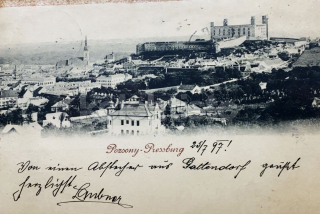 Pozsony-Pressburg 24/7 97!
Von einem Abstecher aus Gattendorf grüßt
herzlichst